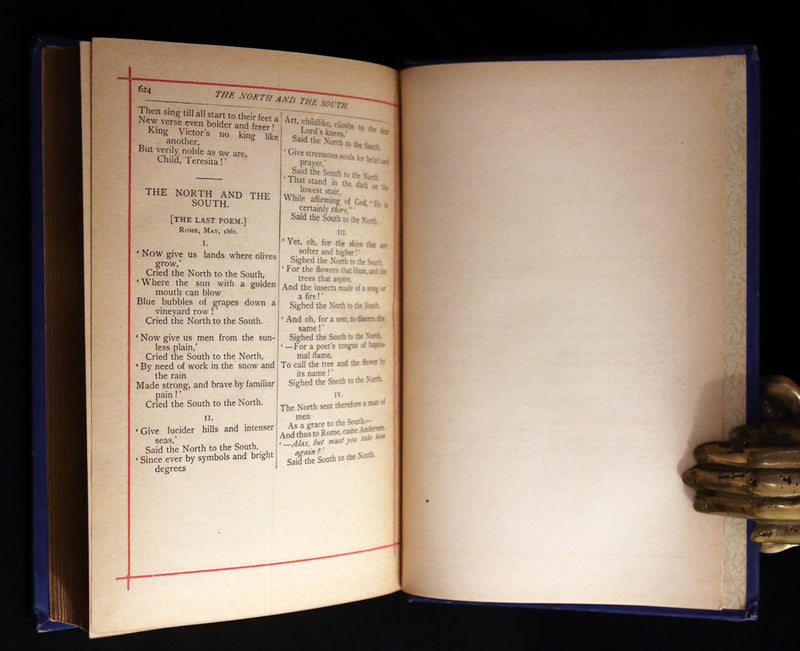 624
THE NORTH AND THE SOUTH.
Then sing till all start to their feet a
New verse even bolder and freer!
King Victor's no king like
another,
But verily noble as we are,
Child, Teresita!'
THE NORTH AND THE
SOUTH.
[THE LAST POEM.]
ROME, MAY, 1861.
I.
'Now give us lands where olives
grow,'
Cried the North to the South,
'Where the sun with a golden
mouth can blow
Blue bubbles of grapes down a
vineyard row!'
Cried the North to the South.
'Now give us men from the sun-
less plain,'
Cried the South to the North,
'By need of work in the snow and
the rain
Made strong, and brave by familiar
pain!'
Cried the South to the North.
II.
'Give lucider hills and intenser
seas,'
Said the North to the South,
'Since ever by symbols and bright
degrees
Art, childlike, climbs to the dear
Lord's knees,'
Said the North to the South.
'Give strenuous souls for belief and
prayer,'
Said the South to the North,
'That stand in the dark on the
lowest stair,
While affirming of God, "He is
certainly there,"'
Said the South to the North.
III.
'Yet, oh, for the skies that are
softer and higher!'
Sighed the North to the South,
'For the flowers that blaze, and the
trees that aspire,
And the insects made of a song or
a fire!'
Sighed the North to the South.
'And oh, for a seer, to discern the
same!'
Sighed the South to the North,
'—For a poet's tongue of baptis-
mal flame,
To call the tree and the flower by
its name!'
Sighed the South to the North.
IV.
The North sent therefore a man of
men
As a grace to the South,—
And thus to Rome, came Andersen.
'—Alas, but must you take him
again?'
Said the South to the North.